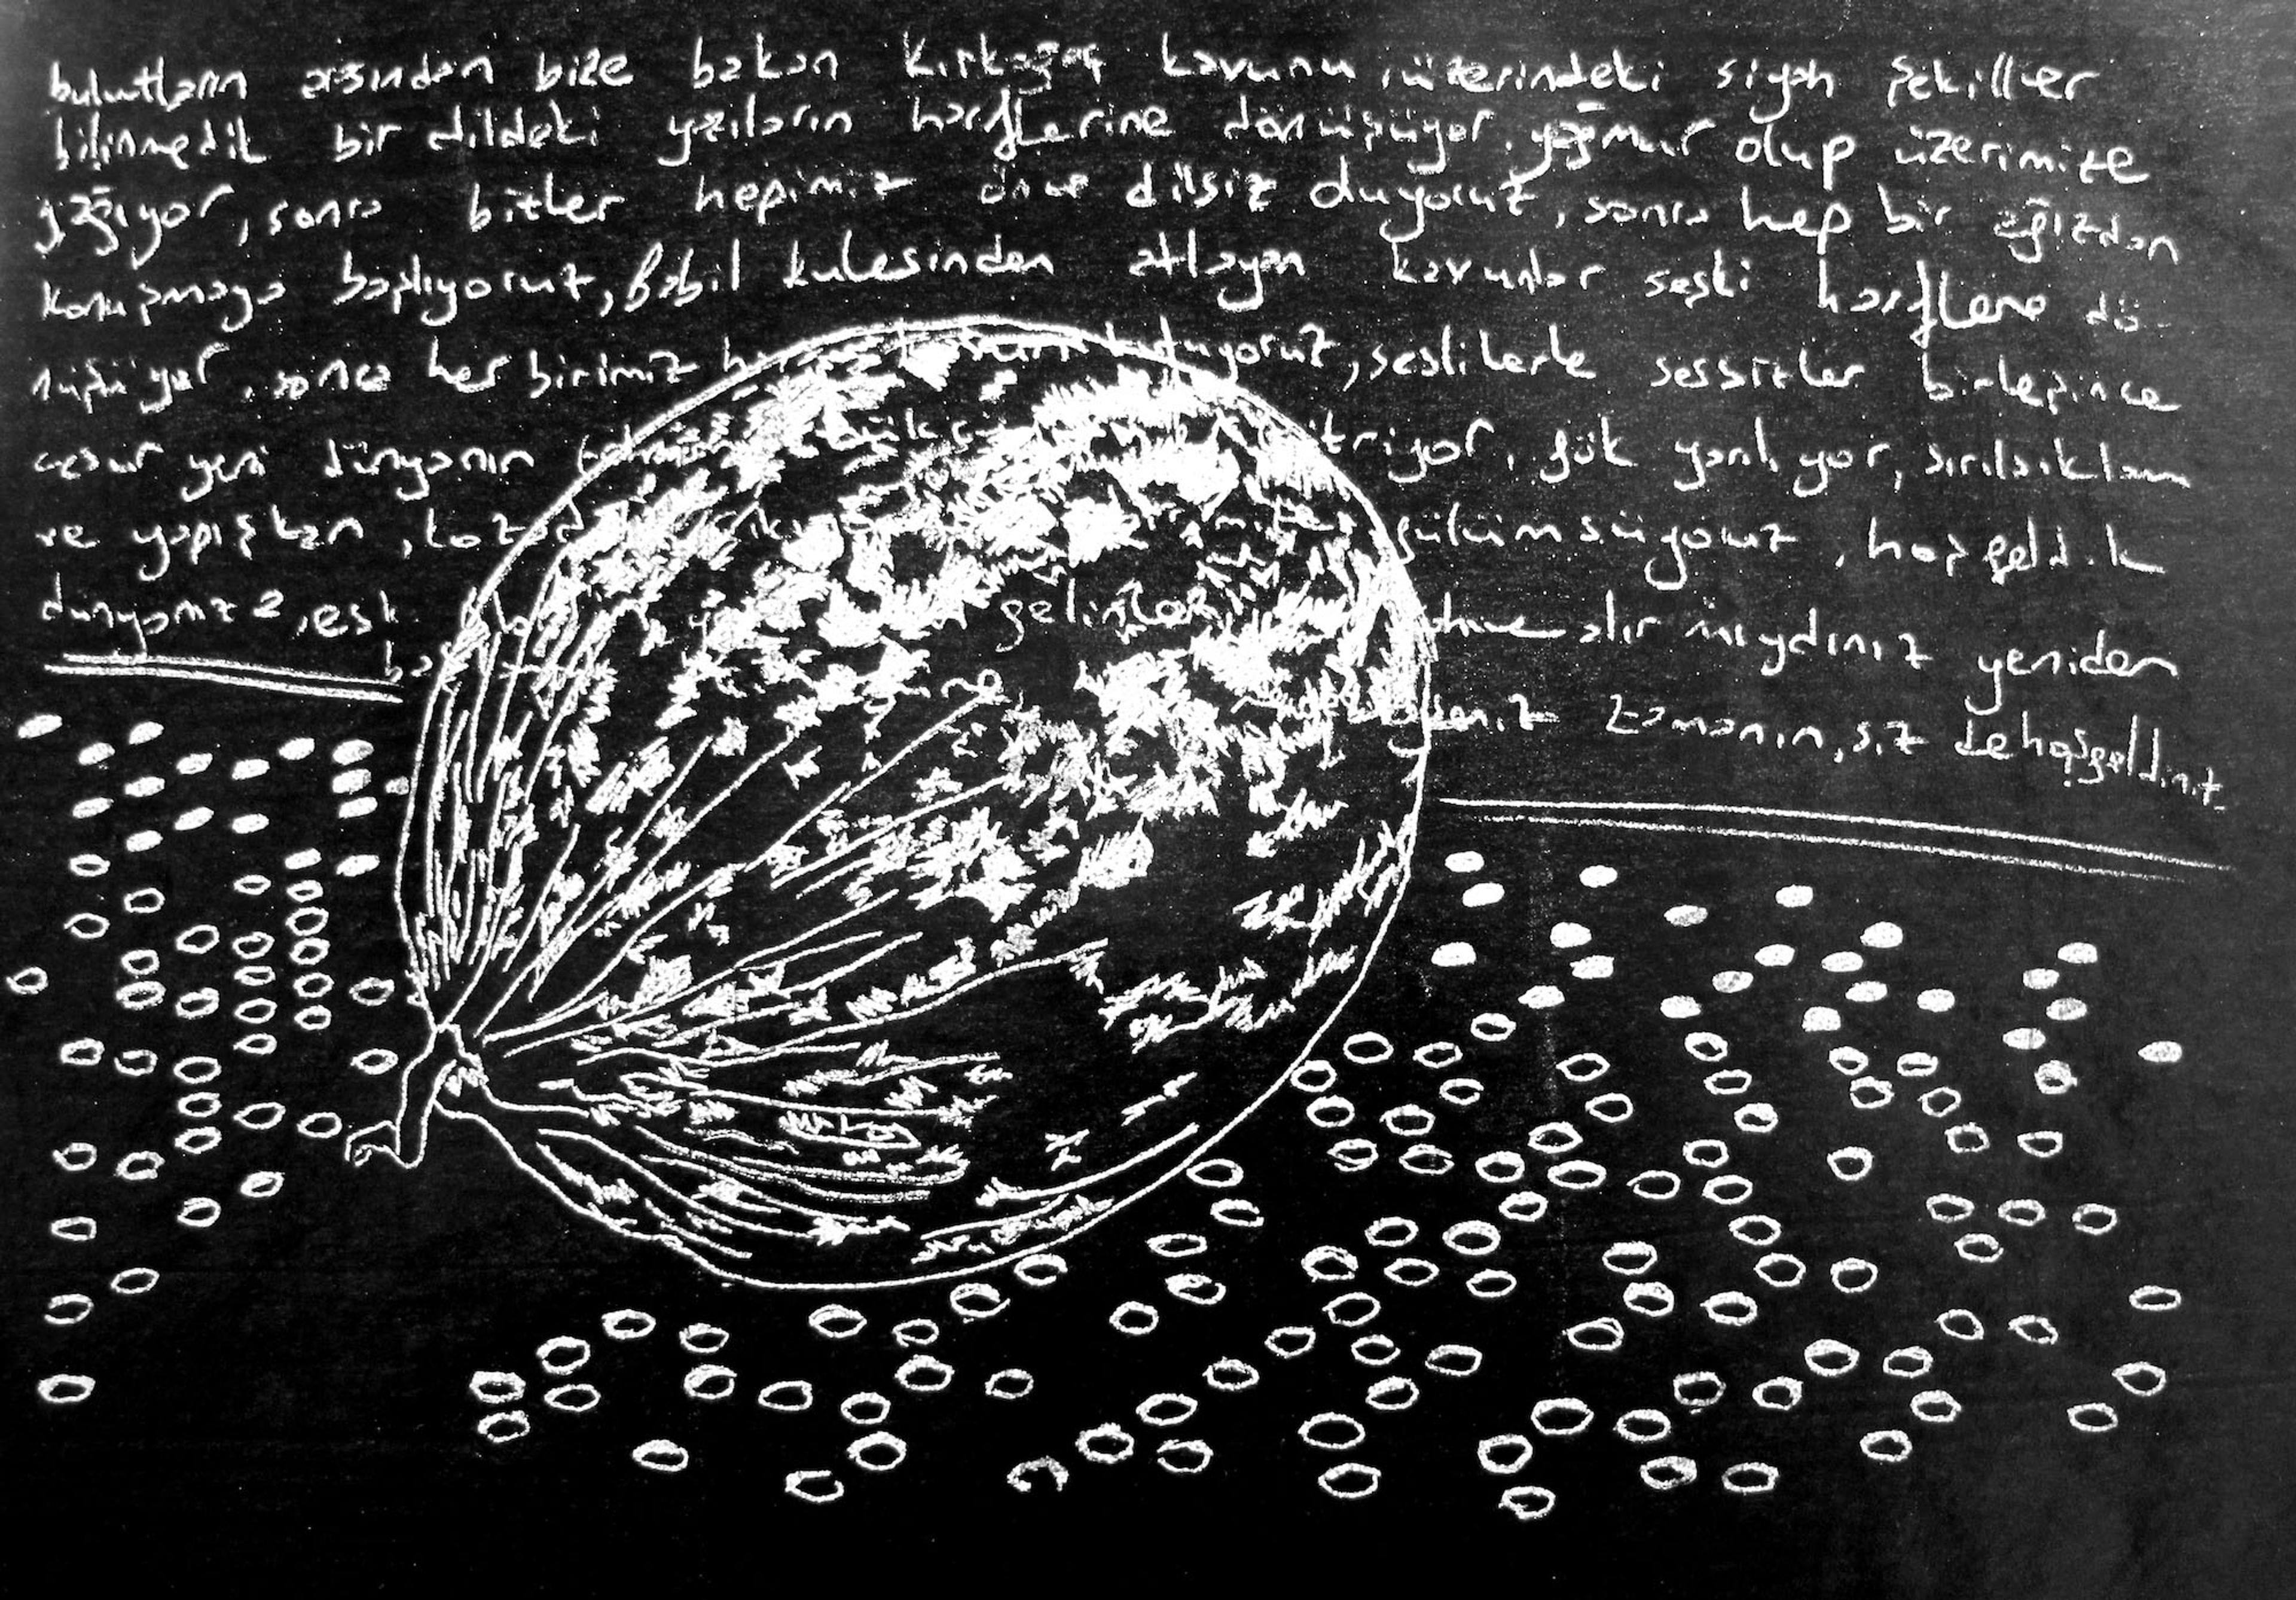 bulutların arasından bize bakan Kırkağaç kavunu üzerindeki siyah şekiller
bilinmedik bir dildeki yazıların harflerine dönüşüyor, yağmur olup üzerimize
yağıyor, sonra bizler hepimiz önce dilsiz duyoruz, sonra hep bir ağızdan
konuşmaya başlıyoruz, Babil kulesinden atlayan kavunlar sesli harflere dö-
nüşüyor, sonra her birimiz tutuyoruz, seslilerle sessizler birleşince
cesur yeni dünyanın gök yarılıyor, sırılsıklam
ve yapışkan, gülümsüyoruz, hoşgeldik
dünyamıza, esk gelinler alır mıydınız yeniden
zamanın, siz de hoşgeldiniz.